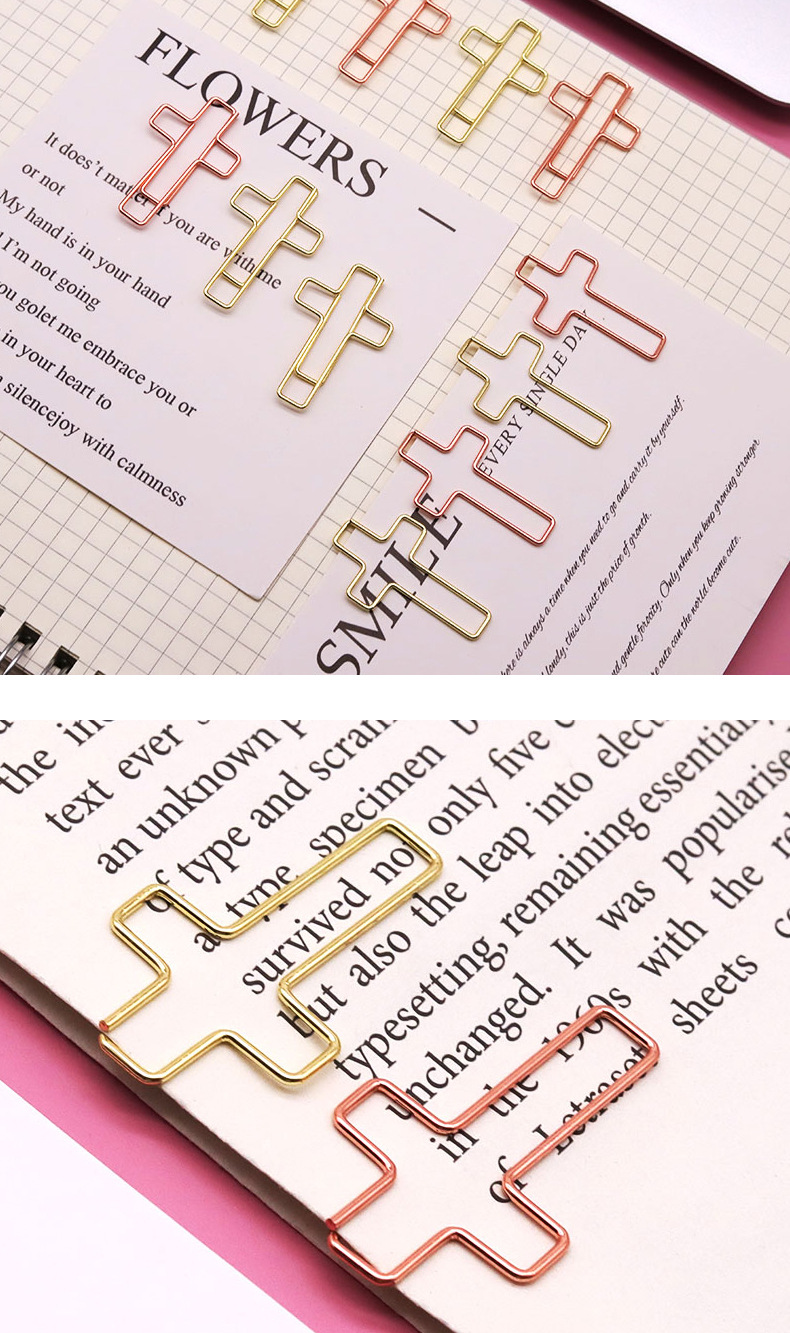 FLOWERS —
It does't matter if you are with me
or not
My hand is in your hand
I'm not going
you golet me embrace you or
in your heart to
silencejoy with calmness
EVERY SINGLE DAY
SMILE
there is always a time when you need to go and carry it by yourself.
lonely, this is just the price of growth.
and gentle ferocity. Only when you keep growing stronger
cute can the world become cute.
the
text ever
an unknown
of type and
a type specimen
survived not only five
but also the leap into
typesetting, remaining essentially
unchanged. It was popularised
in the 1960s with the
of Letraset sheets